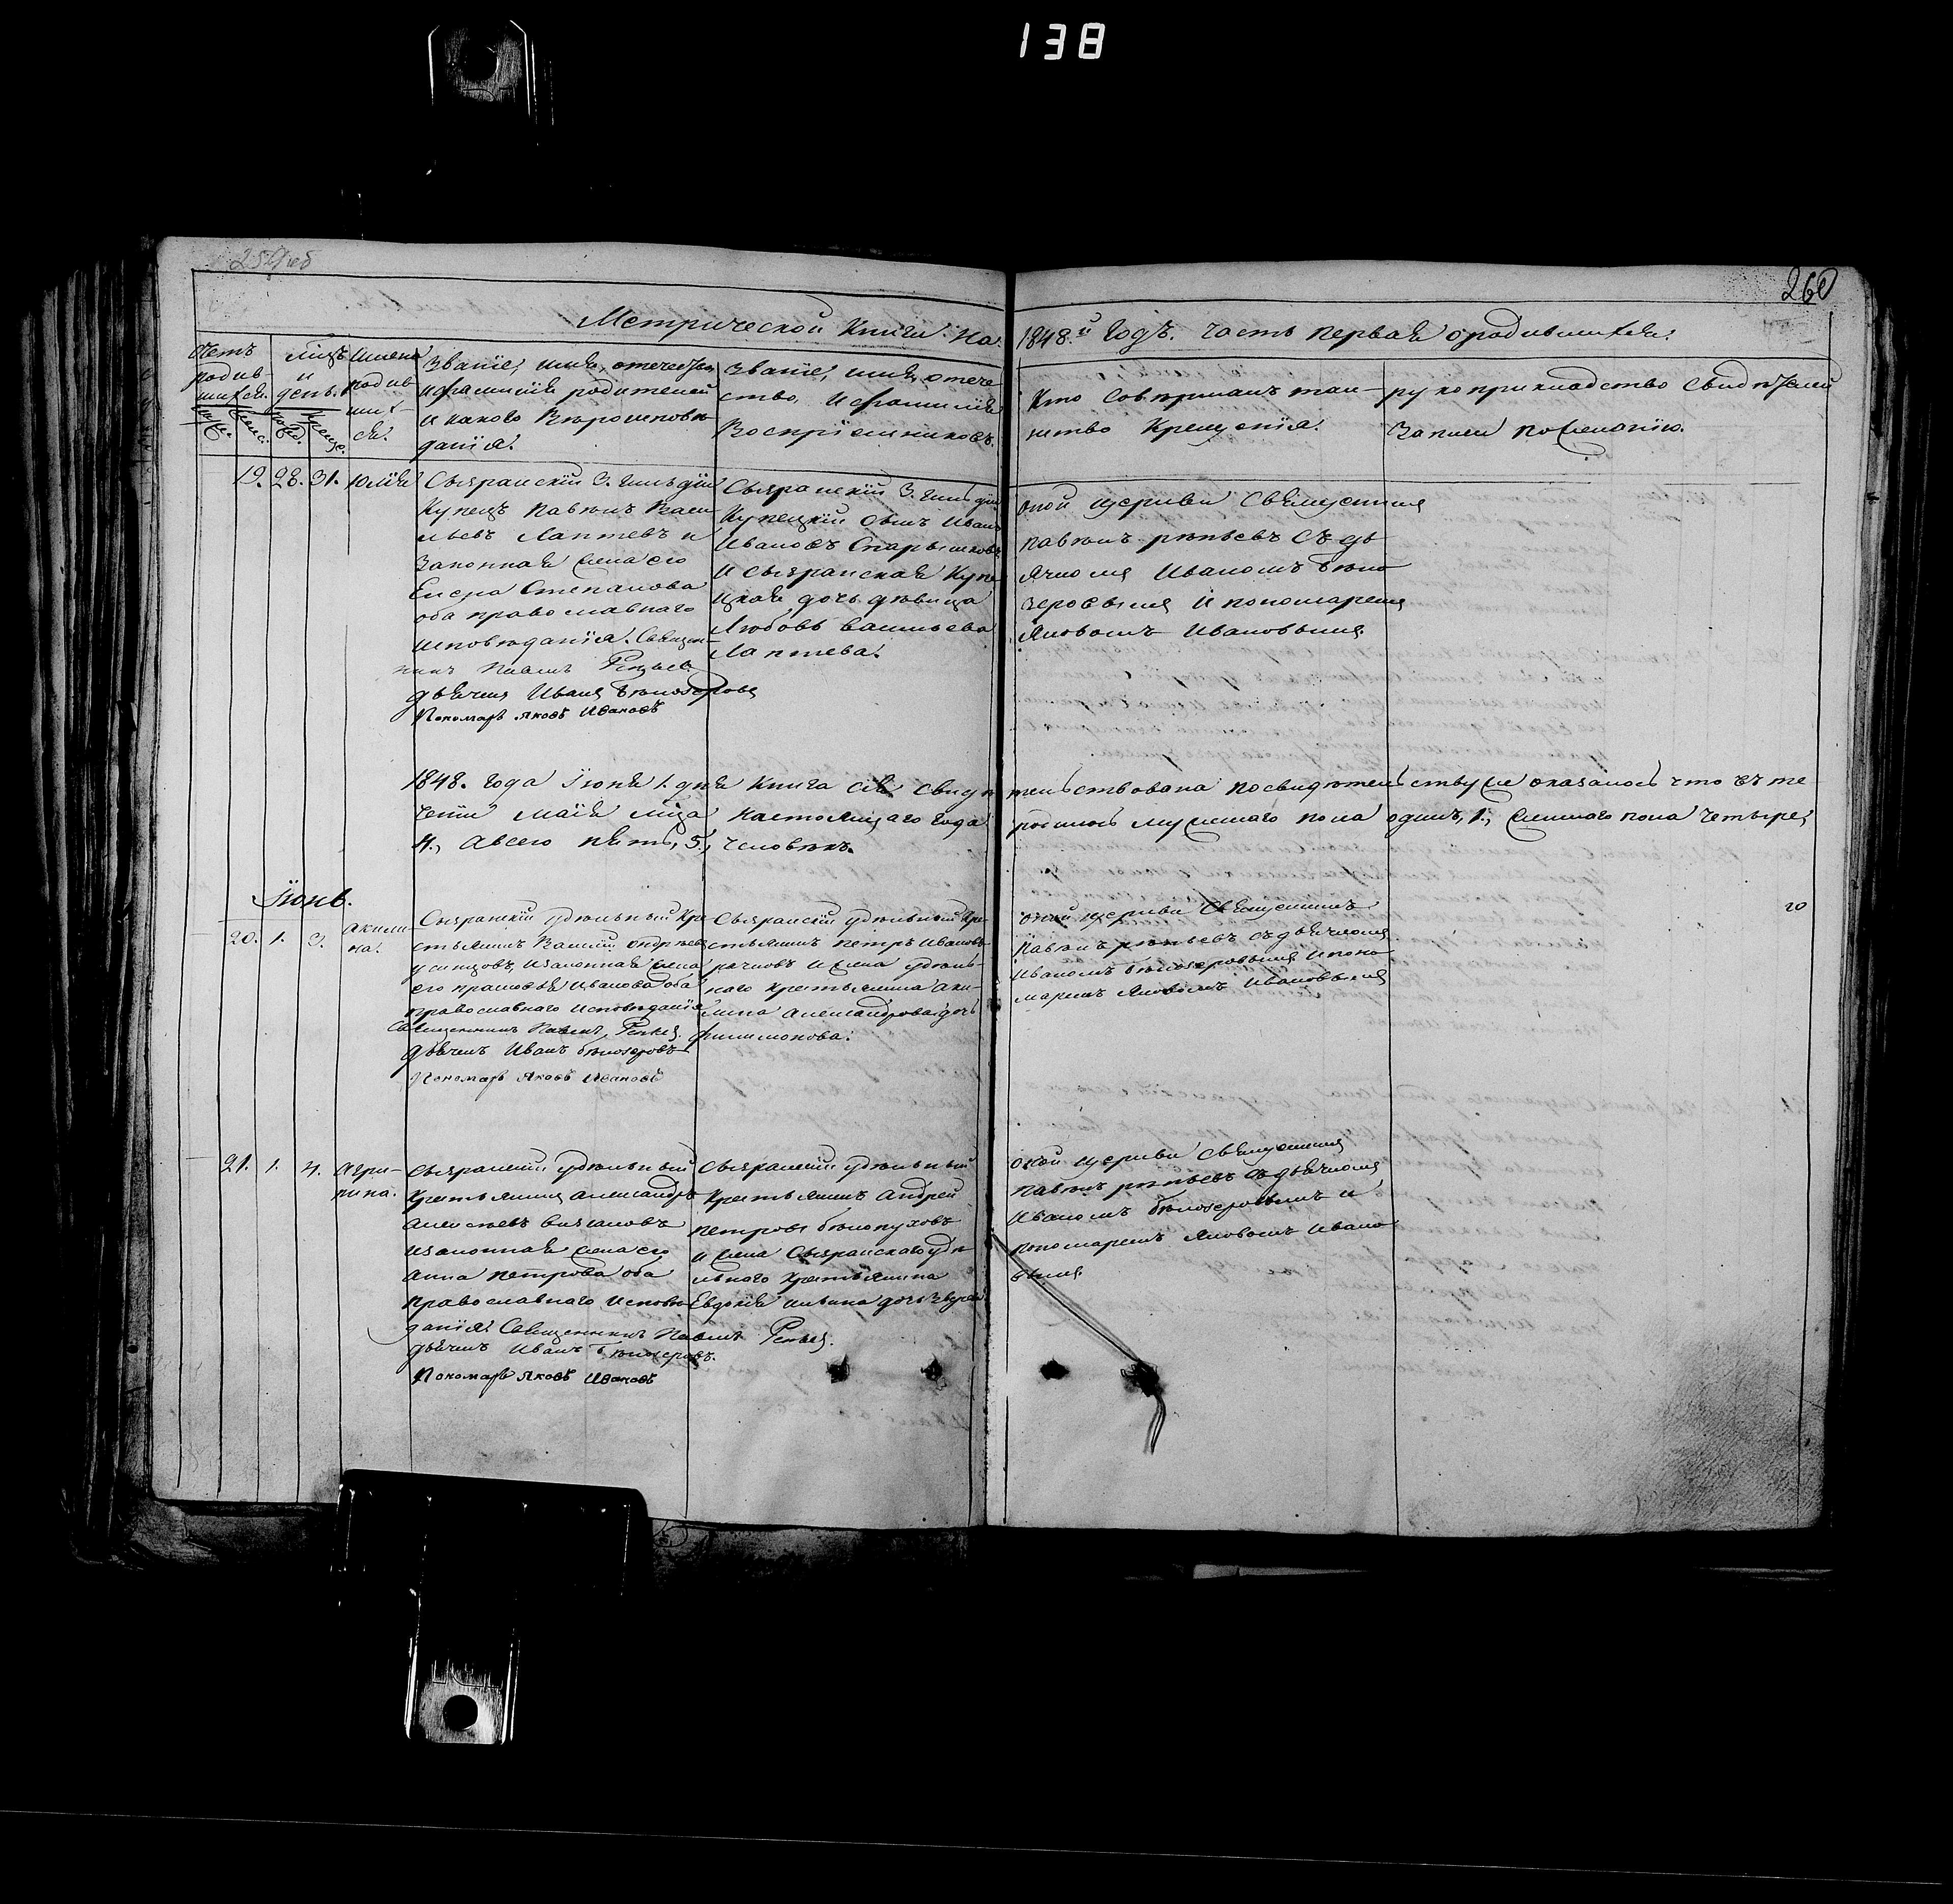 138
259 об
260
Метрической Книги на 1848й Годъ. Часть первая о родившихся.
Счетъ
родив-
шихся.
Муж.
Женс.
Мцъ
и
день.
Рожд.
Крещ.
Имена
родив-
ших-
ся.
Званіе, имя, отечество
и фамилія родителей
и какого Вѣроисповѣ
данія.
Званіе, имя, отече
ство, и фамилія
Воспріемниковъ.
Кто Совершалъ таи-
нство Крещенія.
рукоприкладство Свидѣтелей
Записи по желанію.
19. 28. 31. Юлія
Сызранскій 3. гильдіи
Купецъ Павелъ Васи
льевъ Лаптевъ и
Законная жена его
Степанова
оба православнаго
исповѣданія. Священ-
никъ Павелъ Рѣпьев
дьячекъ Иванъ Бѣлозеровъ
Пономарь Яковъ Ивановъ
Сызранскій 3. гильдіи
Купецкій сынъ Иванъ
Ивановъ
и Сызранская Купе
цкая дочь дѣвица
Любовь Васильева
Лаптева.
оной церкви Священникъ
Павелъ Рѣпьевъ Съ дь
ячкомъ Иваномъ Бѣло
зеровымъ и пономаремъ
Яковомъ Ивановымъ
1848. Года Іюня 1. дня Книга сія Свидѣтельствована по свидѣтельству же оказалось что въ те
ченіи Маія мца настоящаго Года родилось мужескаго пола одинъ, 1., женскаго пола четыре,
4., а всего пять, 5., человѣкъ.
Іюнь.
20. 1. 3. Акили-
на.
Сызранскій удѣльный Кре
стьянинъ Василій Андреевъ
и законная жена
его Ивановa оба
православнаго Исповѣданія
Священникъ Павелъ Рѣпьев
дьячекъ Иванъ Бѣлозеровъ
Пономарь Яковъ Ивановъ
Сызранскій удѣльный Кре
стьянинъ Петръ Ивановъ
и жена удѣль-
наго Крестьянина Аки-
лина Александрова дочь
Филимонова.
оной церкви Священникъ
Павелъ Рѣпьевъ съ дьячкомъ
Иваномъ Бѣлозеровымъ и поно
маремъ Яковомъ Ивановымъ
21. 1. 4. Агри-
пина.
Сызранскій удѣльный
Крестьянинъ Александръ
Алексѣевъ
и законная жена его
Анна Петрова оба
православнаго Исповѣ
данія. Священникъ Павелъ Рѣпьев.
дьячекъ Иванъ Бѣлозеровъ.
Пономарь Яковъ Ивановъ
Сызранскій удѣльный
Крестьянинъ Андрей
Петровъ Бѣлопуховъ
и жена Сызранскаго удѣ
льнаго Крестьянина
Евдокія Ильина дочь
оной церкви Священникъ
Павелъ Рѣпьевъ съ дьячкомъ
Иваномъ Бѣлозеровымъ и
пономаремъ Яковомъ Ивано
вымъ